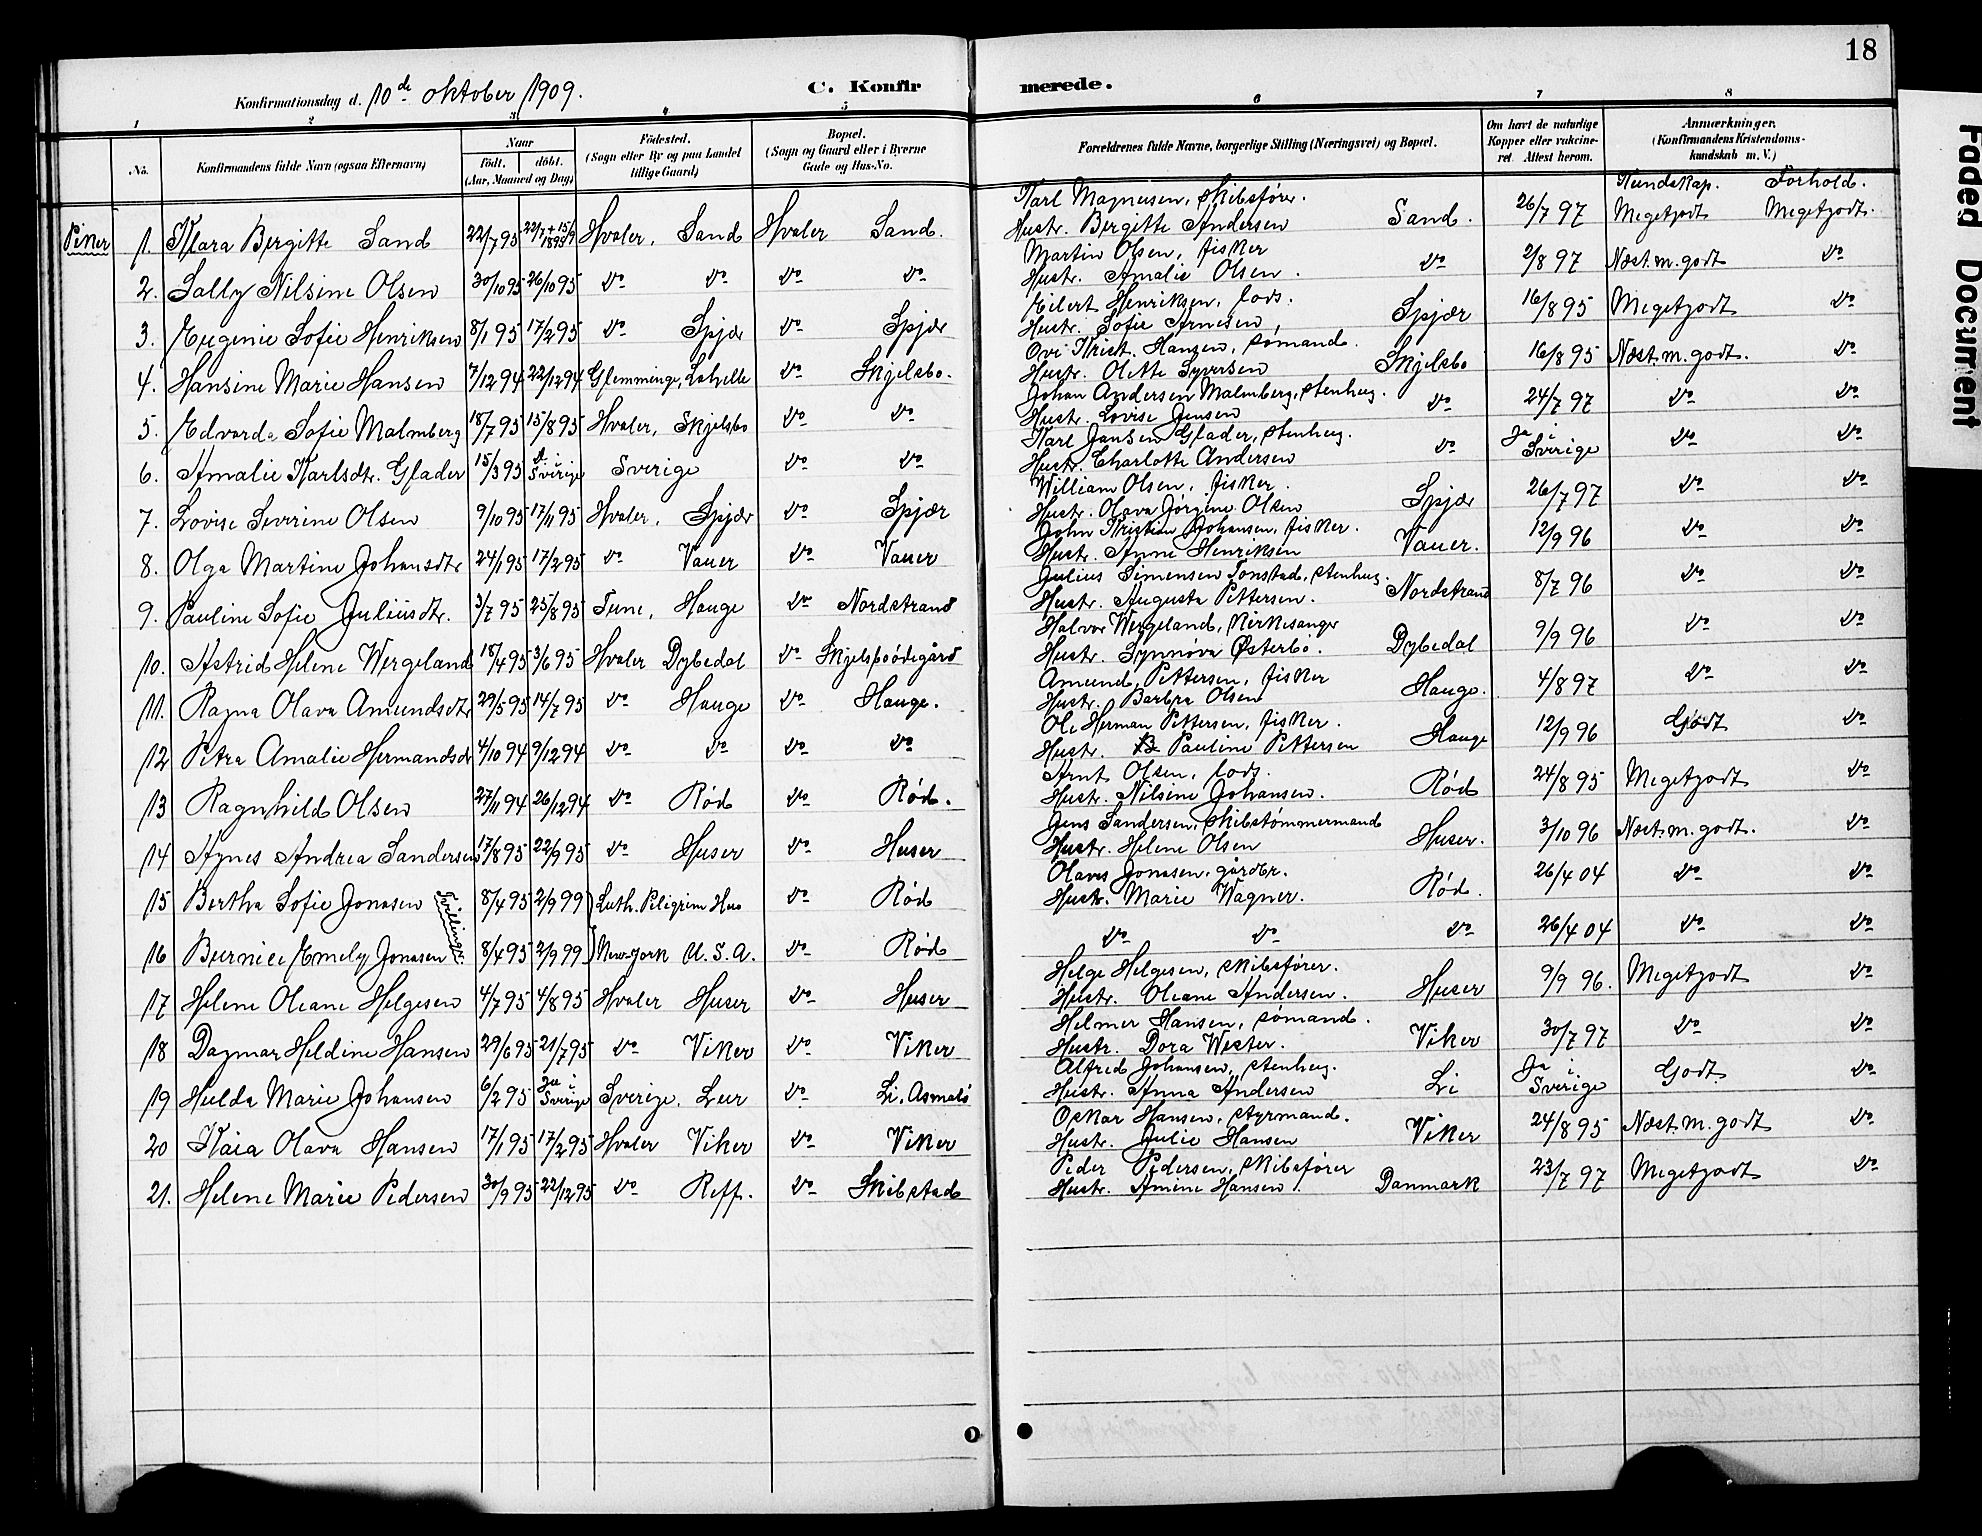 18
Konfirmationsdag d. 10de oktober 1909. C. Konfirmerede.
1 2 3 4 5 6 7 8
No. Konfirmandens fulde Navn (ogsaa Efternavn) Naar födt. döbt. (Aar, Maaned og Dag) Födested. (Sogn eller By og paa Landet tillige Gaard) Bopæl. (Sogn og Gaard eller i Byerne Gade og Hus-No. Forældrenes fulde Navne, borgerlige Stilling (Næringsvei) og Bopæl. Om havt de naturlige Kopper eller vakcineret. Attest herom. Anmærkninger. (Konfirmandens Kristendomskundskab m. V.)
Kundskap. Forhold.
Piker 1. Klara Bergitte Sand 22/7 95 22/7 + 15/9 1895 Hvaler, Sand Hvaler Sand. Karl Magnusen, Skibsfører. Hustr. Bergitte Andersen Sand. 26/7 97 Megetgodt Megetgodt.
2. Sally Nilsine Olsen 30/10 95 26/10 95 do do do do Martin Olsen, fisker Hustr. Amalie Olsen. do 2/8 97 Næst.m.godt do
3. Eugenie Sofie Henriksen 8/1 95 17/2 95 do Spjær do Spjær Eilert Henriksen, lods. Hustr. Sofie Arnesen, Spjær 16/8 95 Megetgodt do
4. Hansine Marie Hansen 7/12 94 22/12 94 Glemminge, Labelle do Skjelsbo. Ovi Krist. Hansen, sømand. Hustr. Olette Syversen Skjelsbo 16/8 95 Næst.m.godt. do
5. Edvarda Sofie Malmberg 18/7 95 15/8 95 Hvaler, Skjelsbo do do Johan Andersen Malmberg, stenhug. Hustr. Lovise Jensen do 24/7 97 do do
6. Amalie Karlsdtr. Glader 15/3 95 i Sverige Sverige do do Karl Jansen Glader, stenhug. Hustr. Charlotte Andersen do Ja i Sverige do do
7. Lovise Severine Olsen 9/10 95 17/11 95 Hvaler, Spjær do Spjær William Olsen, fisker. Hustr. Olava Jørgine Olsen Spjær 26/7 97 do do
8. Olga Martine Johansdtr 24/1 95 17/2 95 do Vauer do Vauer John Kristian Johansen, fisker. Hustr. Anne Henriksen Vauer. 12/9 96 do do
9. Pauline Sofie Juliusdtr. 3/7 95 25/8 95 Tune, Hauge do Nordstrand Julius Simensen Tonstad, stenhug. Hustr. Augusta Pettersen. Nordstrand 8/7 96 do do
10. Astrid Helene Wergeland 18/4 95 3/6 95 Hvaler Dybedal do Skjelsboødegård Halvor Wergeland, kirkesanger Hustr. Synnøva Østerbö. Dybedal 9/9 96 do do
11. Ragna Olava Amundsdtr 29/5 95 14/7 95 do Hauge do Hauge. Amund Pettersen, fisker Hustr. Barbra Olsen Hauge. 4/8 97 do do
12 Petra Amalie Hermandsdr 4/10 94 9/12 94 do do do do Ole Herman Pettersen, fisker. Hustr. Pauline Pettersen Hauge 12/9 96 Godt do
13 Ragnhild Olsen 27/11 94 26/12 94 do Rød do Rød. Arnt Olsen, lods. Hustr. Nilsine Johansen. Rød 24/8 95 Megetgodt do
14 Agnes Andrea Sandersen 17/8 95 22/9 95 do Huser do Huser Jens Sandersen, Skibstømmermand Hustr. Helene Olsen Huser. 3/10 96 Næst.m.godt. do
15 Bertha Sofie Jonasen Tvillinger 8/4 95 2/9 99 Luth. Peligrim Hus do Rød Olaves Jonasen, gårdbr. Hustr. Marie Wagner. Rød. 26/4 04 do do
16 Burniee Emely Jonasen 8/4 95 2/9 99 New-York U.S.A. do Rød do do do 26/4 04 do do
17 Helene Oleane Helgesen 4/7 95 4/8 95 Hvaler Huser do Huser Helge Helgesen, skibsfører. Hustr. Oleane Andersen. Huser 9/9 96. Megetgodt do
18 Dagmar Heldine Hansen 29/6 95 21/7 95 do Viker do Viker Helmer Hansen, sømand. Hustr. Dora Wester. Viker 30/7 97 do do
19 Hulda Marie Johansen 6/2 95 Ja i Sverige Sverige. Lur do Li, Asmalö Alfred Johansen, stenhug. Hustr. Anna Andersen Li Ja i. Sverige Godt do
20 Kaia Olava Hansen 17/1 95 17/2 95 Hvaler Viker do Viker Oskar Hansen, styrmand. Hustr. Julie Hansen Viker 24/8 95 Næst.m.godt do
21. Helene Marie Pedersen 30/9 95 22/12 95 do Reff. do Skibstad Peder Pedersen, skibsfører Hustr. Amine Hansen. Danmark 23/7 97 Megetgodt do
Faded Document